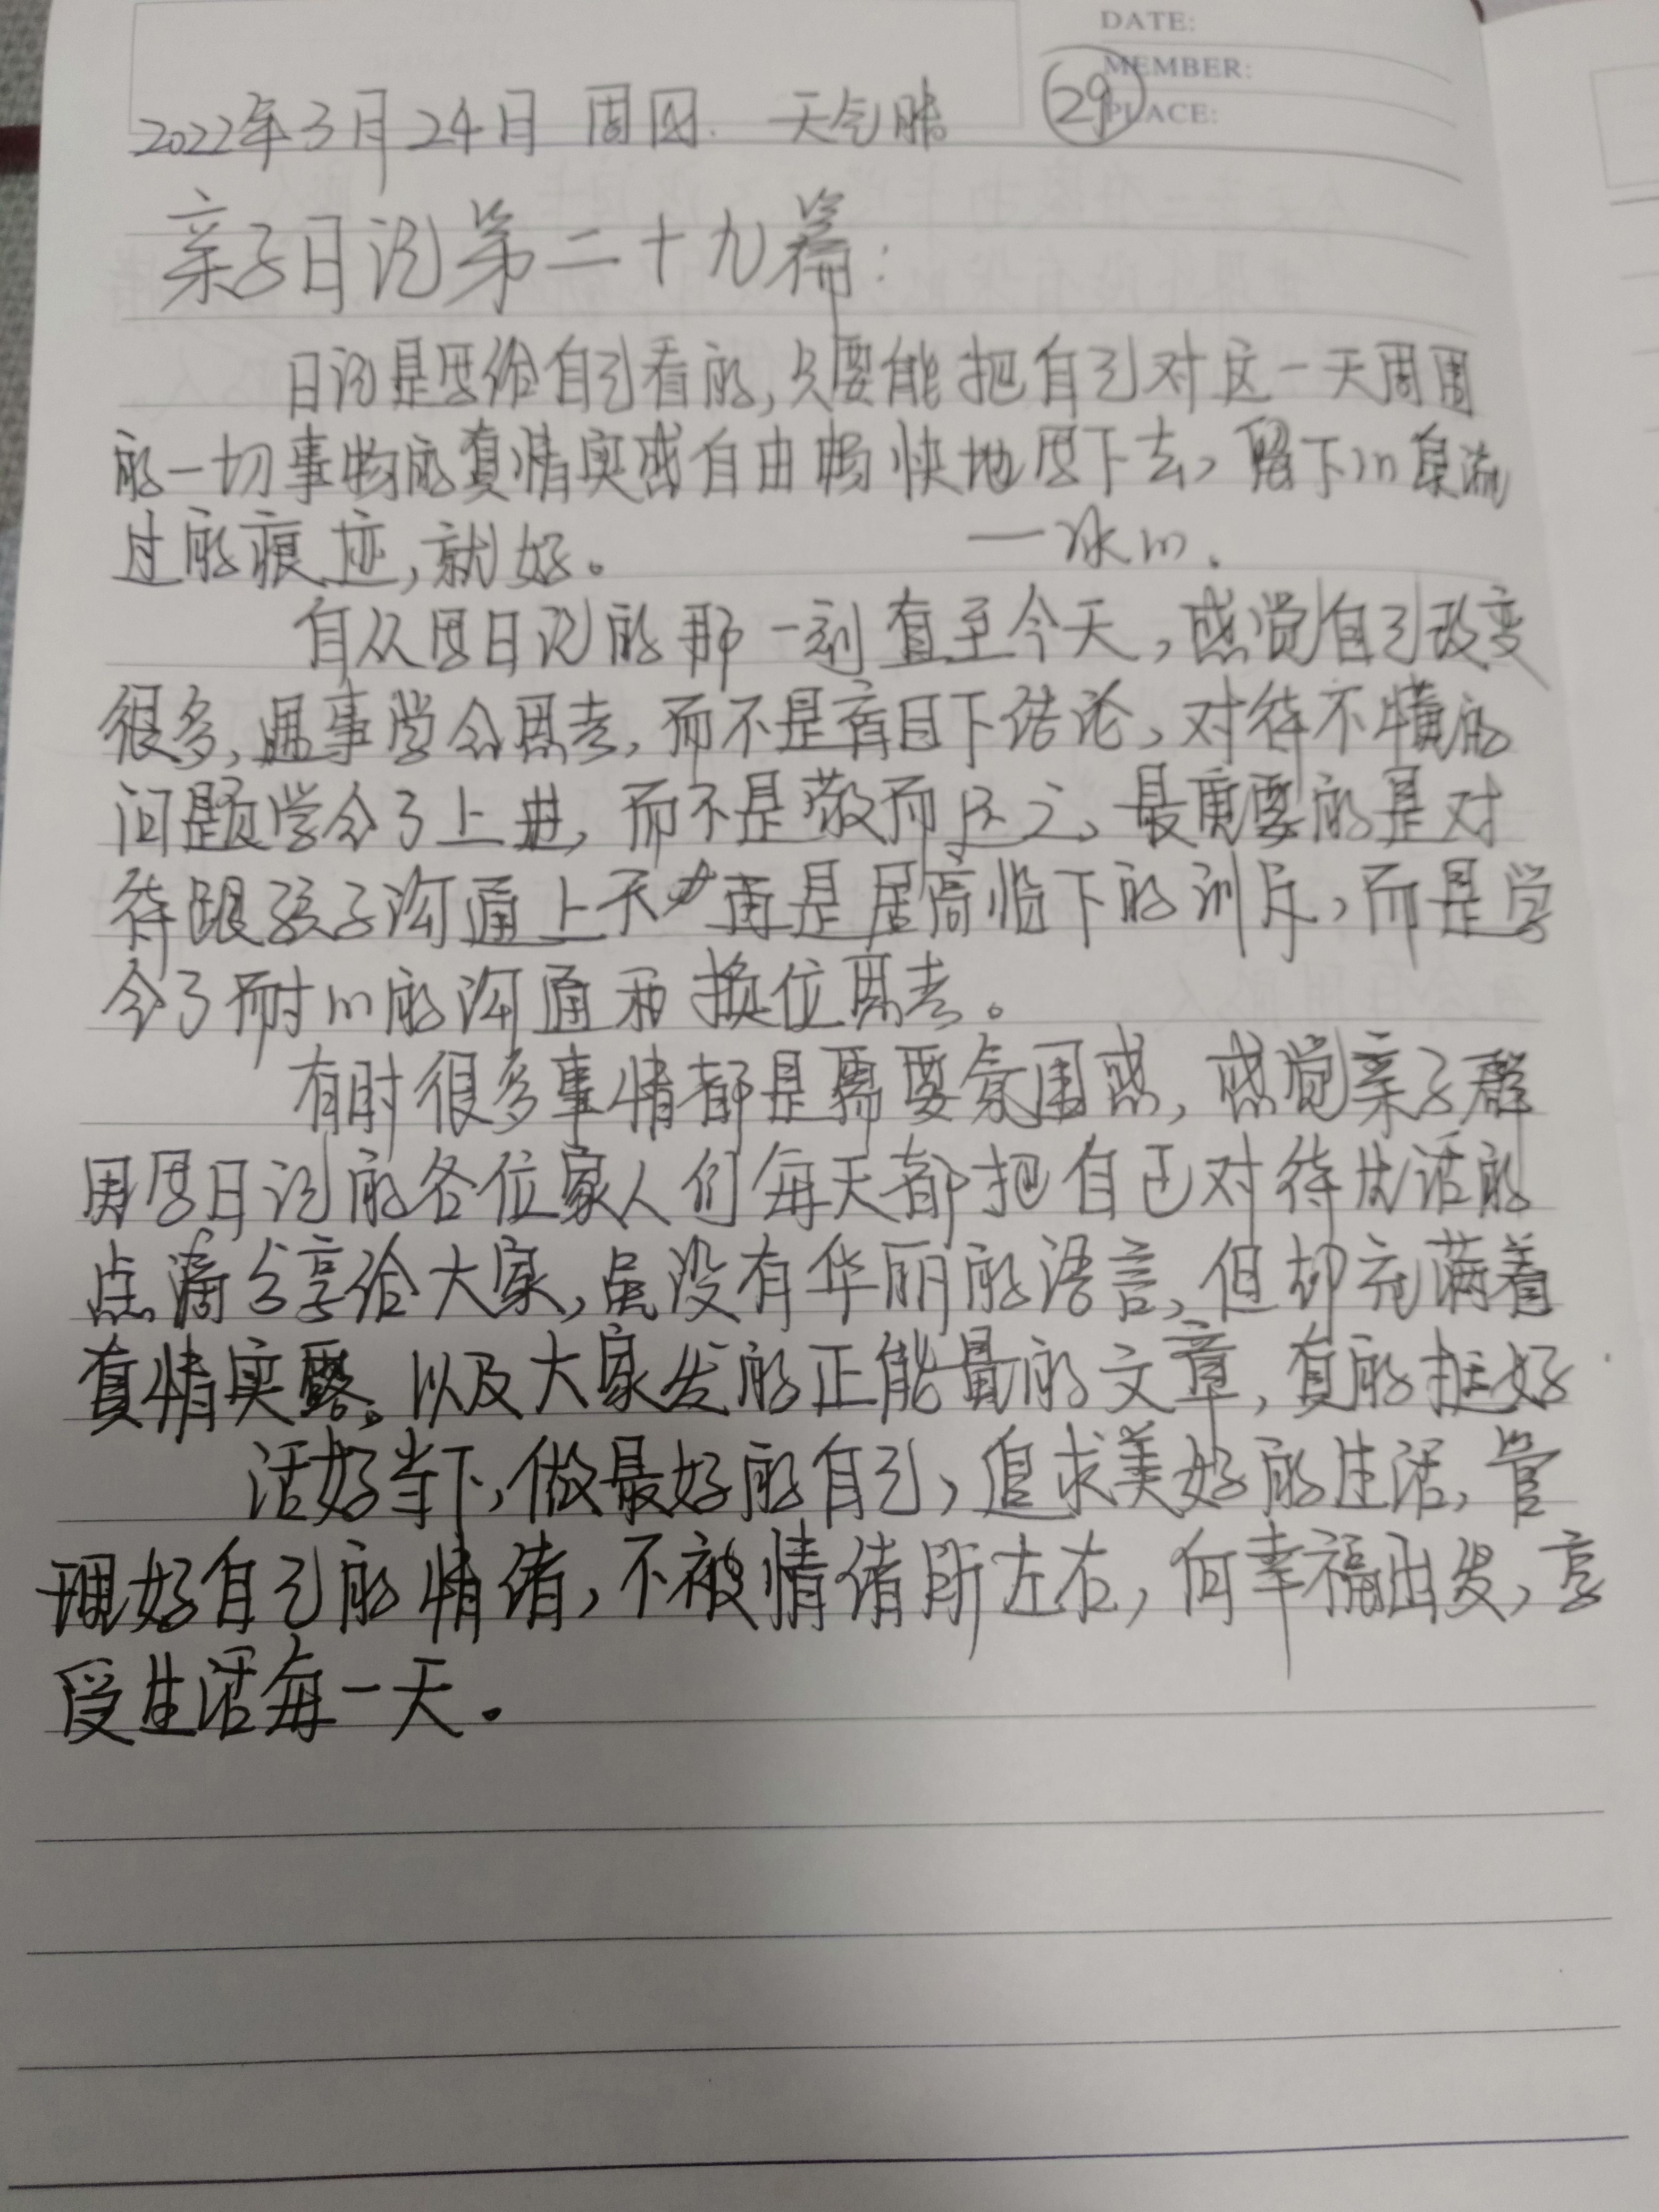 DATE:
MEMBER:
PLACE:
29
2022年3月24日 周四. 天气晴
亲子日记第二十九篇:
日记是写给自己看的,只要能把自己对这一天周围
的一切事物的真情实感自由畅快地写下去,留下心泉流
过的痕迹,就好。 —冰心.
自从写日记的那一刻直至今天,感觉自己改变
很多,遇事学会思考,而不是盲目下结论,对待不懂的
问题学会了上进,而不是敬而远之,最重要的是对
待跟孩子沟通上不再是居高临下的训斥,而是学
会了耐心的沟通和换位思考。
有时很多事情都是需要氛围感,感觉亲子群
里写日记的各位家人们每天都把自己对待生活的
点滴分享给大家,虽没有华丽的语言,但却充满着
真情实露。以及大家发的正能量的文章,真的挺好
活好当下,做最好的自己,追求美好的生活,管
理好自己的情绪,不被情绪所左右,向幸福出发,享
受生活每一天.